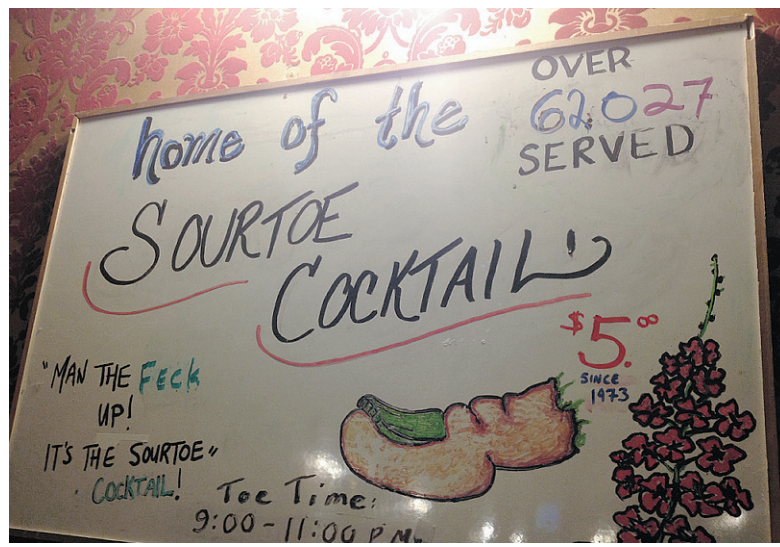 home of the
OVER
62027
SERVED
SOURTOE
COCKTAIL
$5.00
SINCE
1973
"MAN THE FECK
UP!
IT'S THE SOURTOE"
COCKTAIL!
Toe Time:
9:00-11:00 P.M.